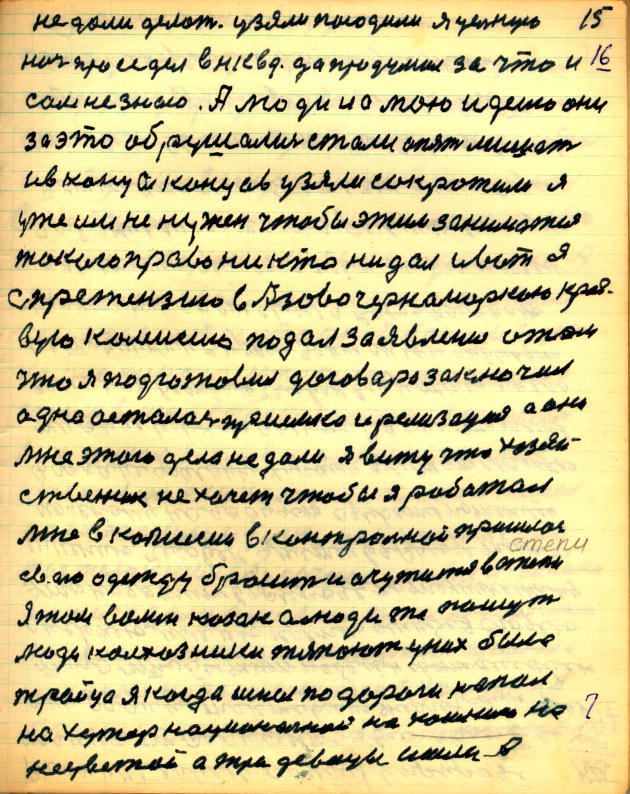 не дали делат. узяли посодили я целную 15
ноч проседел в нквд. да продумал за что и 16
сам не знаю. А люди на мою идею они
за это обрушались стали опят мешат
и в конца концов узяли сократили я
уже им не нужен чтобы этим заниматся
такого право никто ни дал и вот я
с претензию в Азовочерноморскою край-
вую комисию подал заявлению о том
что я подготовил договара заключил
адна осталась приемка и релизацыя а они
мне этого дела не дали я вижу что хозяй-
ственик не хочет чтобы я работал
мне в комисии в контролной пришлос
степи
свою одежду бросит и очутится в степи
я там волны козак а люди те пашут
люди колхозники тяпают у них была
тройца я когда шол по дороги напал
на хутор национальной на кошнию не ?
нецветой а три девацы ишли в